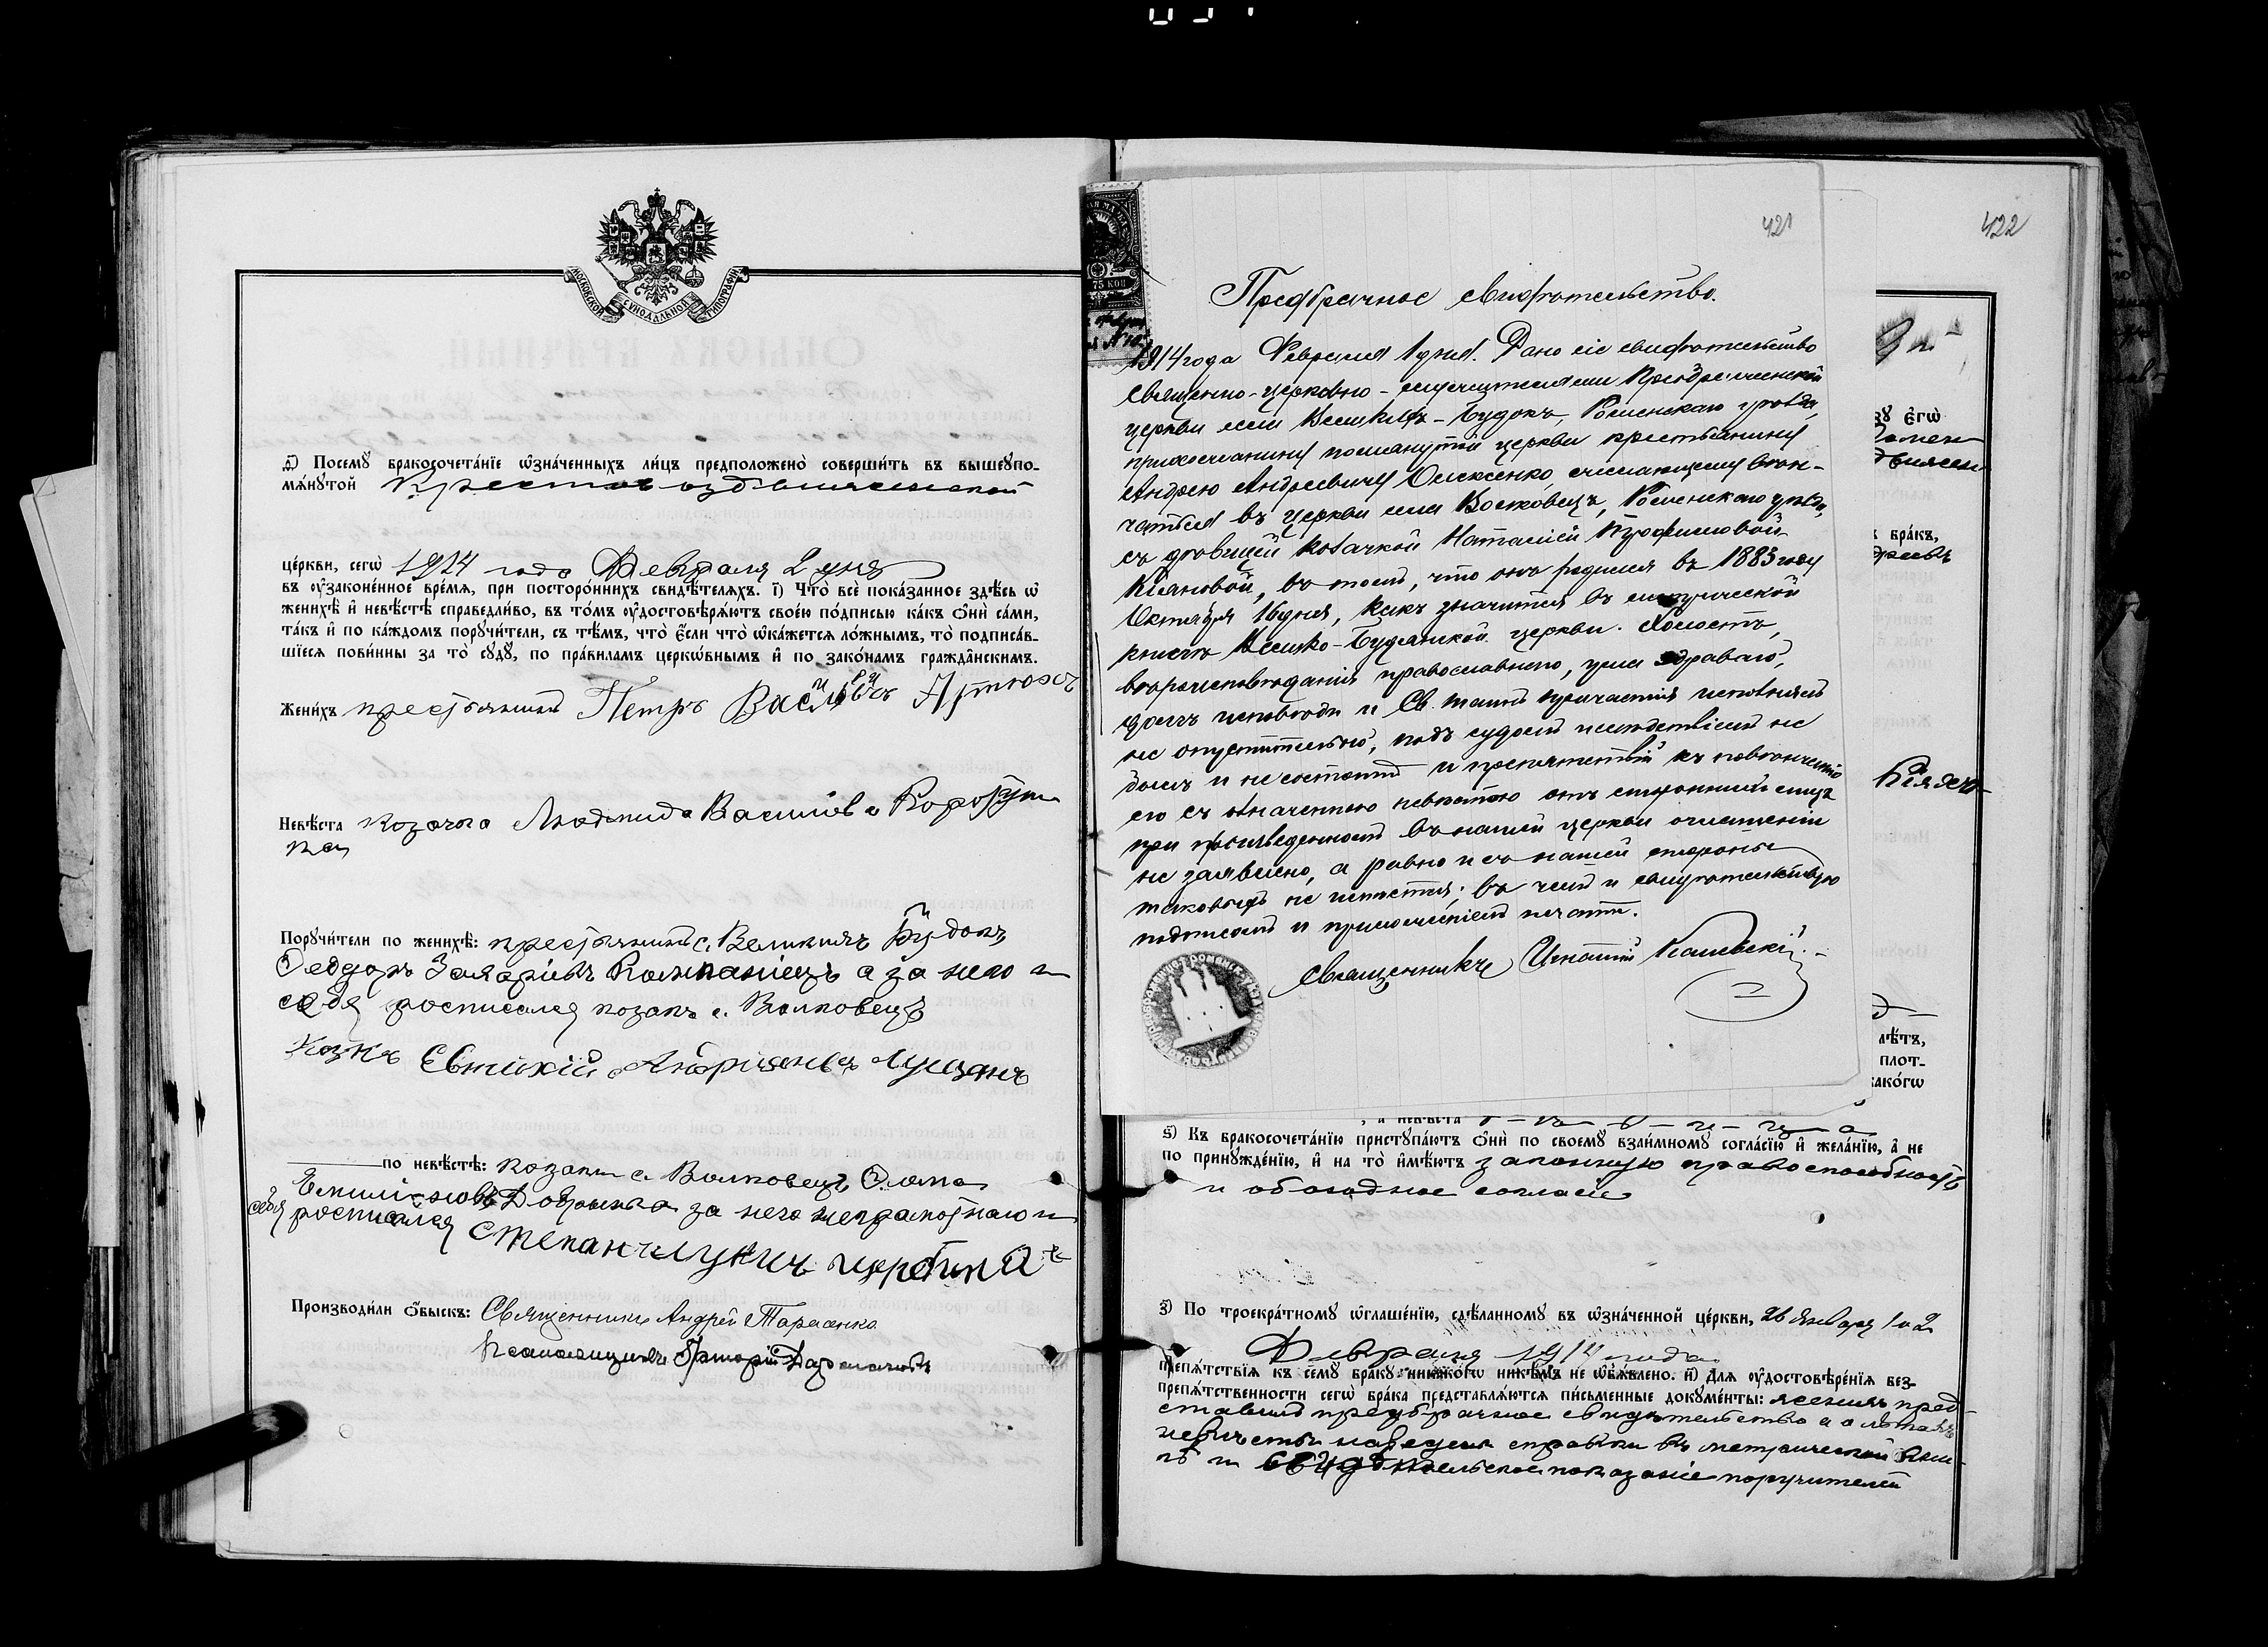 МОСКОВСКОЙ СУНОДАЛЬНОЙ ТИПОГРАФІИ
Посемꙋ̀ бракосочета́нїе ѡ҆зна́ченныхъ ли́цъ предположено̀ соверши́ть въ вышеꙋпо-
мѧ́нꙋтой Крестовоздвиженской
це́ркви, сегѡ̀ 1914 года Февраля 2 дня
въ ᲂу҆зако́ненное вре́мѧ, при посторо́ннихъ свидѣ́телѧхъ. і҃) Что̀ всѐ пока́занное здѣ́сь ѡ҆
женихѣ̀ и҆ невѣ́стѣ справедли́во, въ то́мъ ᲂу҆достовѣрѧ́ютъ свое́ю по́дписью ка́къ ѻ҆нѝ са́ми,
та́къ и҆ по ка́ждомъ порꙋчи́тели, съ тѣ́мъ, что̀ є҆́сли что̀ ѡ҆ка́жетсѧ ло́жнымъ, то̀ подписа́в-
шїесѧ пови́нны за то̀ сꙋдꙋ̀, по пра́виламъ церко́внымъ и҆ по зако́намъ гражда́нскимъ.
Жени́хъ крестьянинъ Петръ Васильевъ Артюхъ
Невѣ́ста козачка Людмила Василіева
Порꙋчи́тели по женихѣ̀: крестьянинъ с. Великихъ Будокъ
Феодоръ Захаріевъ Компаніецъ а за него и
себя росписался козакъ с. Волковецъ
Козакъ Евтихій
по невѣ́стѣ: козаки с. Волковецъ Фома
Емиліановъ за него неграмотнаго и
себя росписался Степанъ
Производи́ли ѻ҆́быскъ: Священникъ Андрей Тарасенко
Псаломщикъ Григорій
75 КОП
421
Предбрачное свидѣтельство.
1914 года Февраля 1 дня. Дано сіе свидѣтельство
священно-церковно-служителями Предтеченской
церкви села Великихъ-Будокъ, Роменскаго уѣзда,
прихожанину помянутой церкви крестьянину
Андрею Андреевичу Олексенко, желающему вѣн-
чаться въ церкви села Волковецъ, Роменскаго уѣзда,
съ дѣвицей козачкой Наталіей Трофимовой
въ томъ, что онъ родился въ 1883 году
Октября 16 дня, какъ значится въ метрической
книгѣ Велико-Будчанской церкви. Холостъ,
вѣроисповѣданія православнаго, ума здраваго,
долгъ исповѣди и Св. таинъ причастія исполнялъ
не опустительно, подъ судомъ и слѣдствіемъ не
былъ и не состоитъ и препятствій къ повѣнчанію
его съ означенною невѣстою отъ стороннихъ лицъ
при произведенномъ въ нашей церкви оглашеніи
не заявлено, а равно и съ нашей стороны
таковыхъ не имѣется; въ чемъ и свидѣтельствую
подписью и приложеніемъ печати.
Священникъ Игнатій
422
ꙋ є҆гѡ̀
бра́къ,
лѣ́тъ,
плот-
како́гѡ
, а҆ невѣ́ста д-ѣ-в-и-ц-а
ѕ҃) Къ бракосочета́нїю пристꙋпа́ютъ ѻ҆нѝ по своемꙋ̀ взаи́мномꙋ согла́сїю и҆ жела́нїю, а҆ не
по принꙋжде́нїю, и҆ на то̀ и҆мѣ́ютъ законную правоспособность
и обоюдное согласіе
з҃) По троекра́тномꙋ ѡ҆глаше́нїю, сдѣ́ланномꙋ въ ѡ҆зна́ченной це́ркви, 26 Января 1 и 2
Февраля 1914 года
препѧ́тствїѧ къ семꙋ̀ бра́кꙋ никако́гѡ никѣ́мъ не ѡ҆б̾ѧ́влено. и҃) Для ᲂу҆достовѣре́нїѧ без-
препѧ́тственности сегѡ̀ бра́ка представлѧ́ютсѧ пи́сьменные докꙋме́нты: женихъ пред-
ставилъ предбрачное свидѣтельство а о лѣтахъ
невѣсты наведена справка въ метрической кни-
гѣ и свидѣтельское показаніе поручителей